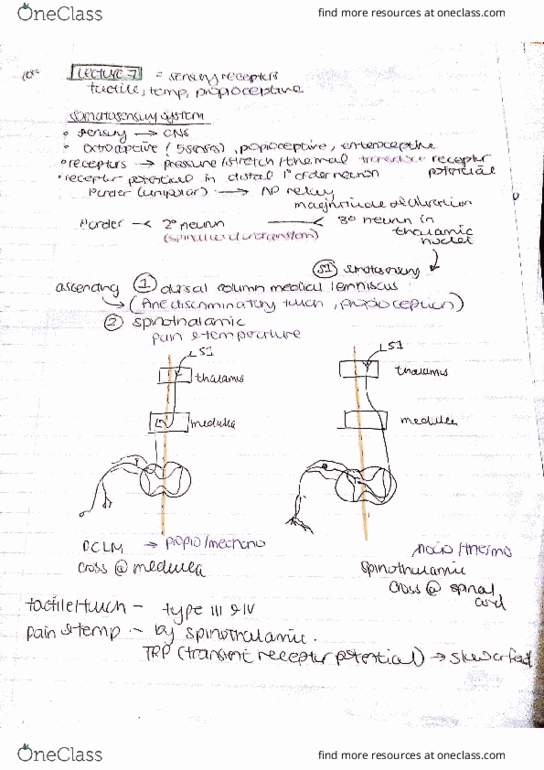 OneClass
find more resources at oneclass.com
Lecture 7 = sensory receptors
tactile, temp, propioceptive
somatosensory system
• sensory → CNS
• extroceptive (5 senses), propioceptive, enteroceptive
• receptors → pressure/stretch/thermal receptor potential
• receptor potential in distal 1° order neuron
1° order (unipolar) → AP relay
magnitude of
1° order —< 2° neuron —< 3° neuron in thalamic nuclei
(spinal cord
(S1) somatosensory
ascending ① dorsal column medical lemniscus
→ (fine discriminatory touch, propioception)
② spinothalamic
pain & temperature
S1
S1
thalamus
thalamus
medulla
medulla
DCLM → propio/mechano
cross @ medulla
nocio/thermo
spinothalamic
cross @ spinal cord
tactile/touch - type III & IV
pain & temp - by spinothalamic.
TRP (transient receptor potential) →
OneClass
find more resources at oneclass.com